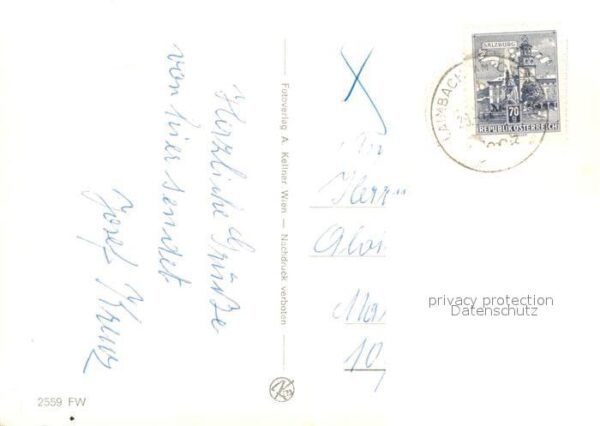 Herzliche Grüße
von hier sendet
Josef
Fotoverlag A. Kellner Wien — Nachdruck verboten
2559 FW
SALZBURG
70
REPUBLIK ÖSTERREICH
An
Herrn
Aloi
10
privacy protection
Datenschutz